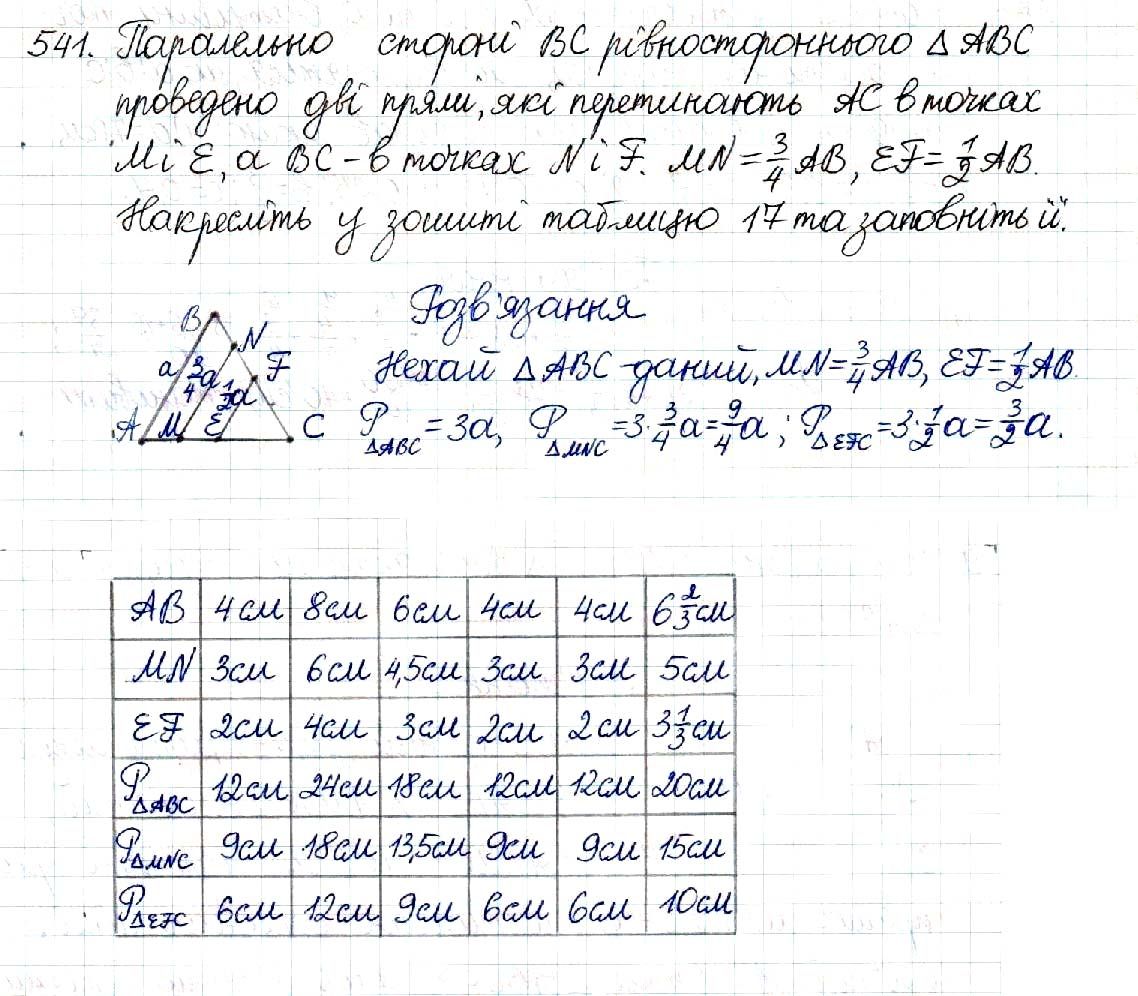 541. Паралельно стороні BC рівностороннього Δ ABC
проведено дві прямі, які перетинають AC в точках
M і E, а BC - в точках N і F. MN = 3/4 AB, EF = 1/2 AB.
Накресліть у зошиті таблицю 17 та заповніть її.
Розв'язання
B N F
a 3/4a 1/2a
A M E C
Нехай Δ ABC - даний, MN = 3/4 AB, EF = 1/2 AB.
P ΔABC = 3a, P ΔMNC = 3·3/4 a = 9/4 a; P ΔEFC = 3·1/2 a = 3/2 a.
AB 4см 8см 6см 4см 4см 6 2/3 см
MN 3см 6см 4,5см 3см 3см 5см
EF 2см 4см 3см 2см 2см 3 1/3 см
P ΔABC 12см 24см 18см 12см 12см 20см
P ΔMNC 9см 18см 13,5см 9см 9см 15см
P ΔEFC 6см 12см 9см 6см 6см 10см